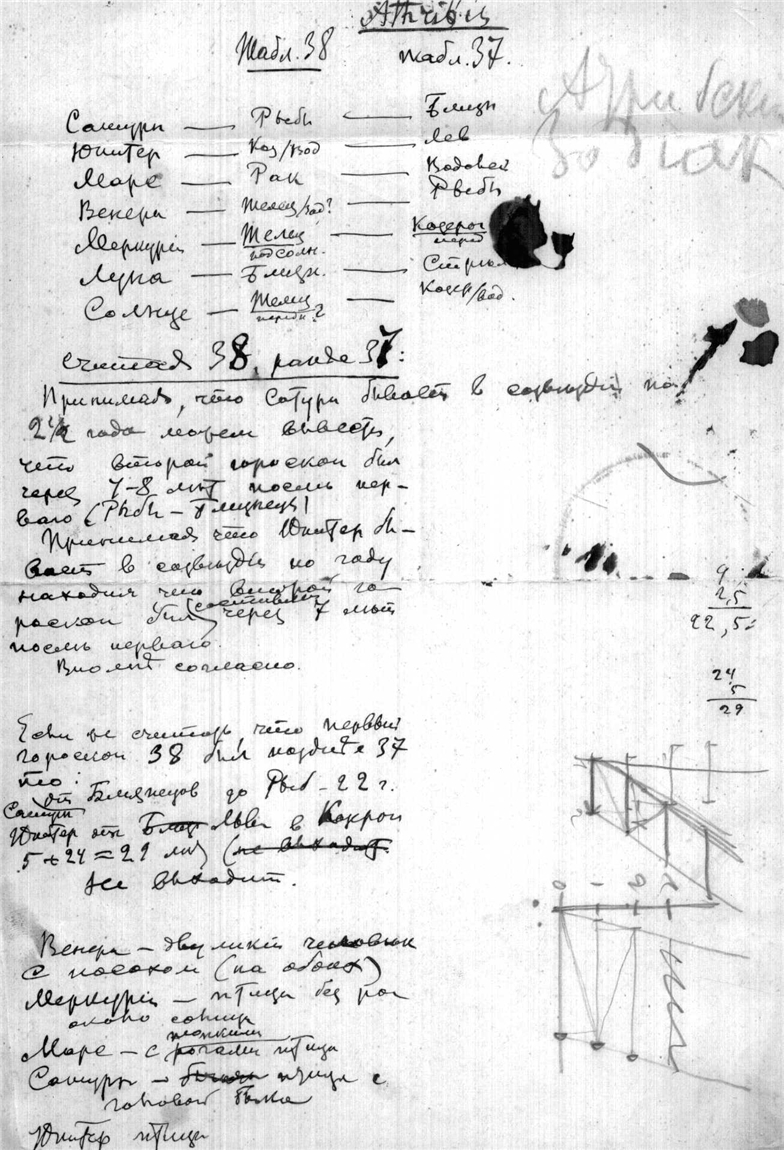 Athribis
Табл. 38 табл. 37.
Атрибски
Зодиак
Сатурн — Рыбы — Близн
Юпитер — Коз/вод — Лев
Марс — Рак — Водолей
Венера — Телец/зод? — Рыбы
Меркурій — Телец под солн. — Козерог перед
Луна — Близн. — Стрел
Солнце — Телец передн? — Козер/вод.
считая 38 раньше 37:
Принимая, что Сатурн бывает в созвездіи по
2½ года можем вывести,
что второй гороскоп был
через 7-8 лет после пер-
ваго (Рыбы — Близнецы)
Принимая что Юпитер бы-
вает в созвездіи по году
находим что второй го-
роскоп был через 7 лет
после перваго.
Вполне согласно.
9
2,5
22,5
24
5
29
Если же считать что первый
гороскоп 38 был позднее 37
то:
от Близнецов до Рыб - 22 г.
Сатурн
Юпитер от Близ Льва в Козерог
5 + 24 = 29 лет (не выходит
не выходит.
0 1 2
Венера — двуликій человек
с посохом (на обоих)
Меркурій — птица без рог
около солнца
Марс — с рогами птица
тонкими
Сатурн — птица с
головой быка
Юпитер птица